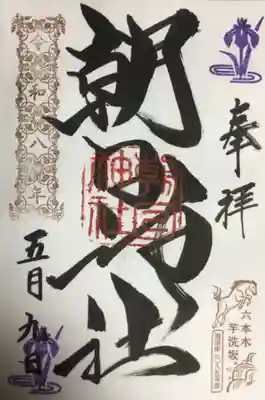 奉拝
朝日神社
朝日神社
令和八年
五月九日
六本木
芋洗坂